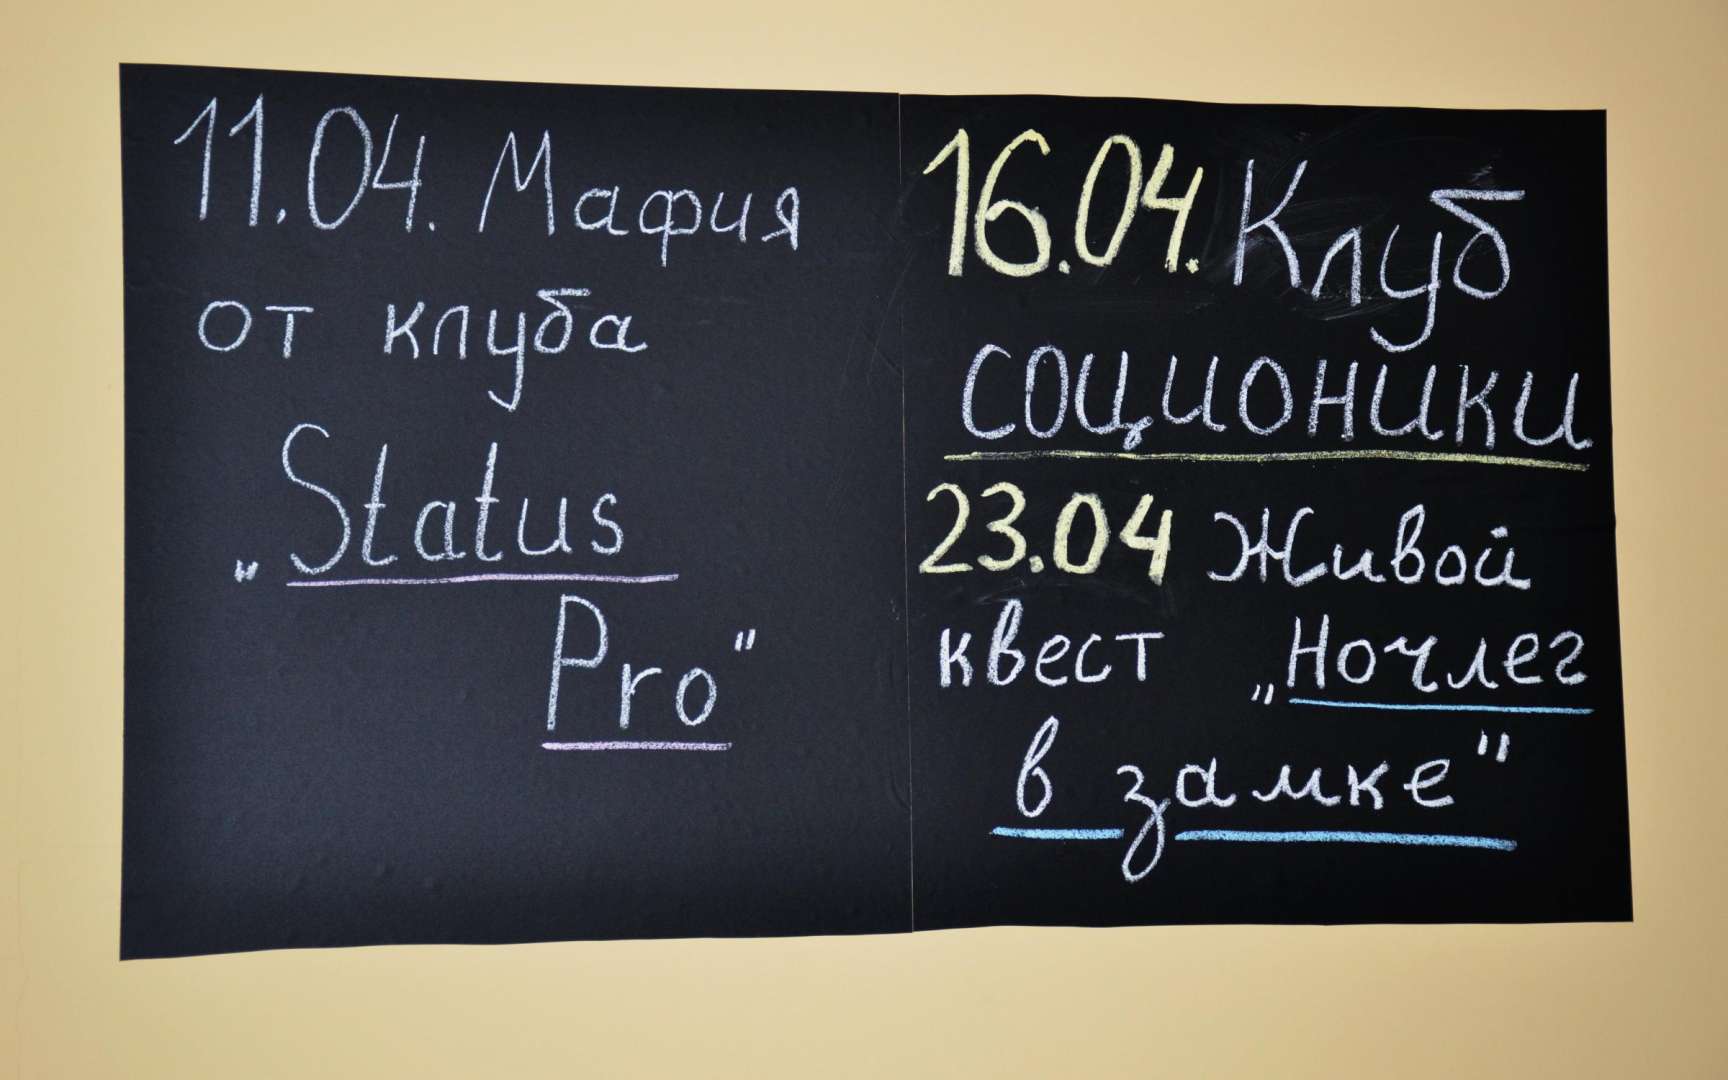 11.04. Мафия
от клуба
„Status
Pro"
16.04. Клуб
соционики
23.04 Живой
квест „Ночлег
в замке"